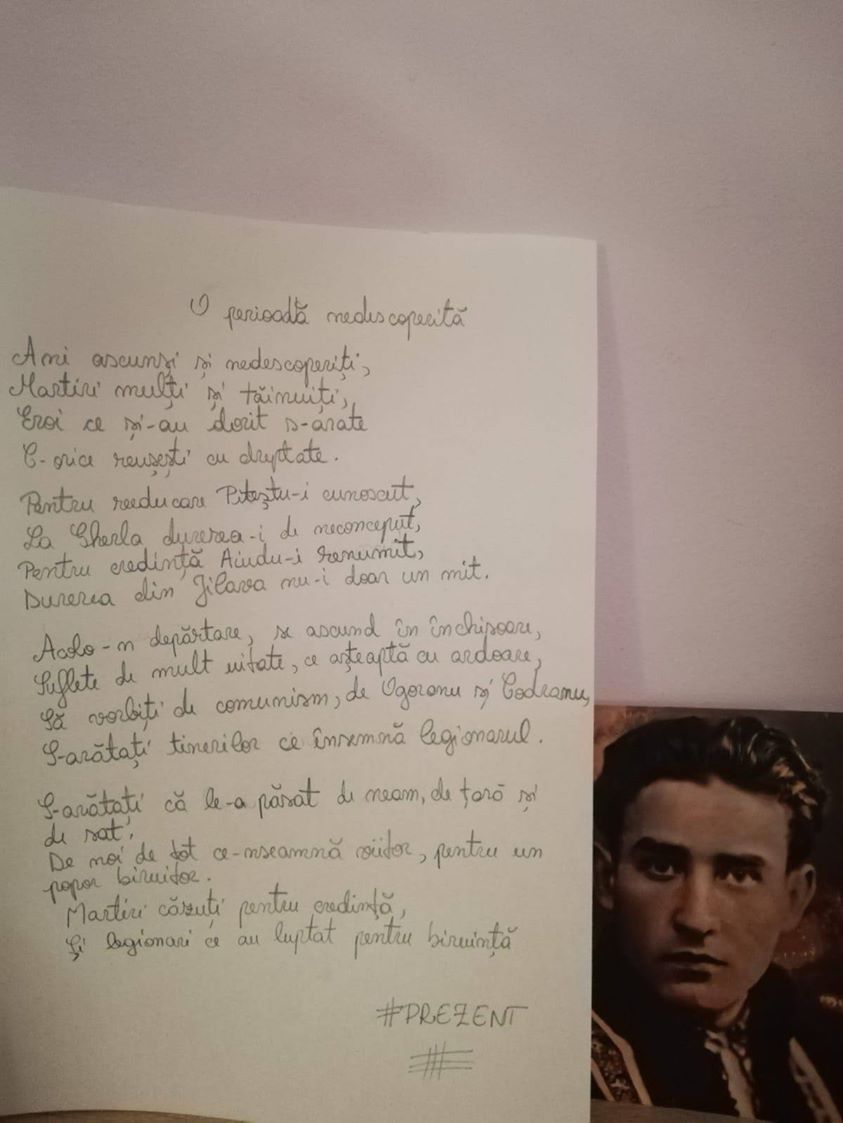 O perioadă nedescoperită
Ani ascunși și nedescoperiți,
Martiri mulți și tăinuiți,
Eroi ce și-au dorit s-arate
C-orice reușești cu dreptate.
Pentru reeducare Piteștu-i cunoscut,
La Gherla durerea-i de neconceput,
Pentru credință Aiudu-i renumit,
Durerea din Jilava nu-i doar un mit.
Acolo-n depărtare, se ascund în închisoare,
Suflete de mult uitate, ce așteaptă cu ardoare,
Să vorbiți de comunism, de Ogoranu și Codreanu,
S-arătați tinerilor ce însemnă legionarul.
S-arătați că le-a păsat de neam, de țară și
de sat,
De noi de tot ce-nseamnă viitor, pentru un
popor biruitor.
Martiri căzuți pentru credință,
Și legionari ce au luptat pentru biruință
#PREZENT